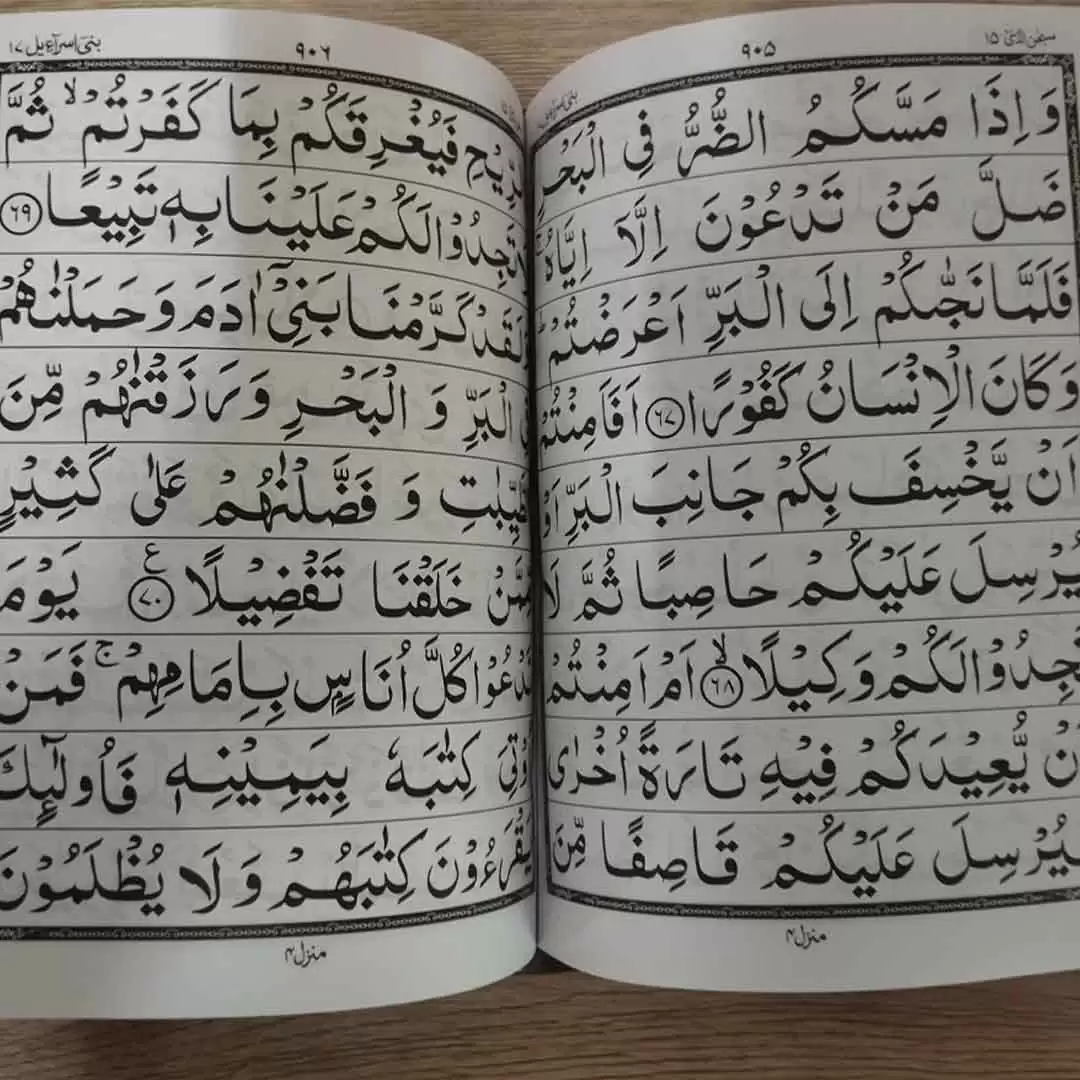 سبحٰن الذیٓ ۱۵
۹۰۵
وَ اِذَا مَسَّكُمُ الضُّرُّ فِی الْبَحْرِ
ضَلَّ مَنْ تَدْعُوْنَ اِلَّاۤ اِیَّاهُ ۚ
فَلَمَّا نَجّٰىكُمْ اِلَی الْبَرِّ اَعْرَضْتُمْ ؕ
وَ كَانَ الْاِنْسَانُ كَفُوْرًا ۶۷ اَفَاَمِنْتُمْ
اَنْ یَّخْسِفَ بِكُمْ جَانِبَ الْبَرِّ اَوْ
یُرْسِلَ عَلَیْكُمْ حَاصِبًا ثُمَّ لَا
تَجِدُوْا لَكُمْ وَكِیْلًا ۙ ۶۸ اَمْ اَمِنْتُمْ
اَنْ یُّعِیْدَكُمْ فِیْهِ تَارَةً اُخْرٰی
فَیُرْسِلَ عَلَیْكُمْ قَاصِفًا مِّنَ
منزل ۴
بنیٓ اسرآءیل ۱۷
۹۰۶
الرِّیْحِ فَیُغْرِقَكُمْ بِمَا كَفَرْتُمْ ۙ ثُمَّ
لَا تَجِدُوْا لَكُمْ عَلَیْنَا بِهٖ تَبِیْعًا ۶۹
وَ لَقَدْ كَرَّمْنَا بَنِیْۤ اٰدَمَ وَ حَمَلْنٰهُمْ
فِی الْبَرِّ وَ الْبَحْرِ وَ رَزَقْنٰهُمْ مِّنَ
الطَّیِّبٰتِ وَ فَضَّلْنٰهُمْ عَلٰی كَثِیْرٍ
مِّمَّنْ خَلَقْنَا تَفْضِیْلًا ۷۰ ع یَوْمَ
نَدْعُوْا كُلَّ اُنَاسٍۭ بِاِمَامِهِمْ ۚ فَمَنْ
اُوْتِیَ كِتٰبَهٗ بِیَمِیْنِهٖ فَاُولٰٓىِٕكَ
یَقْرَءُوْنَ كِتٰبَهُمْ وَ لَا یُظْلَمُوْنَ
منزل ۴